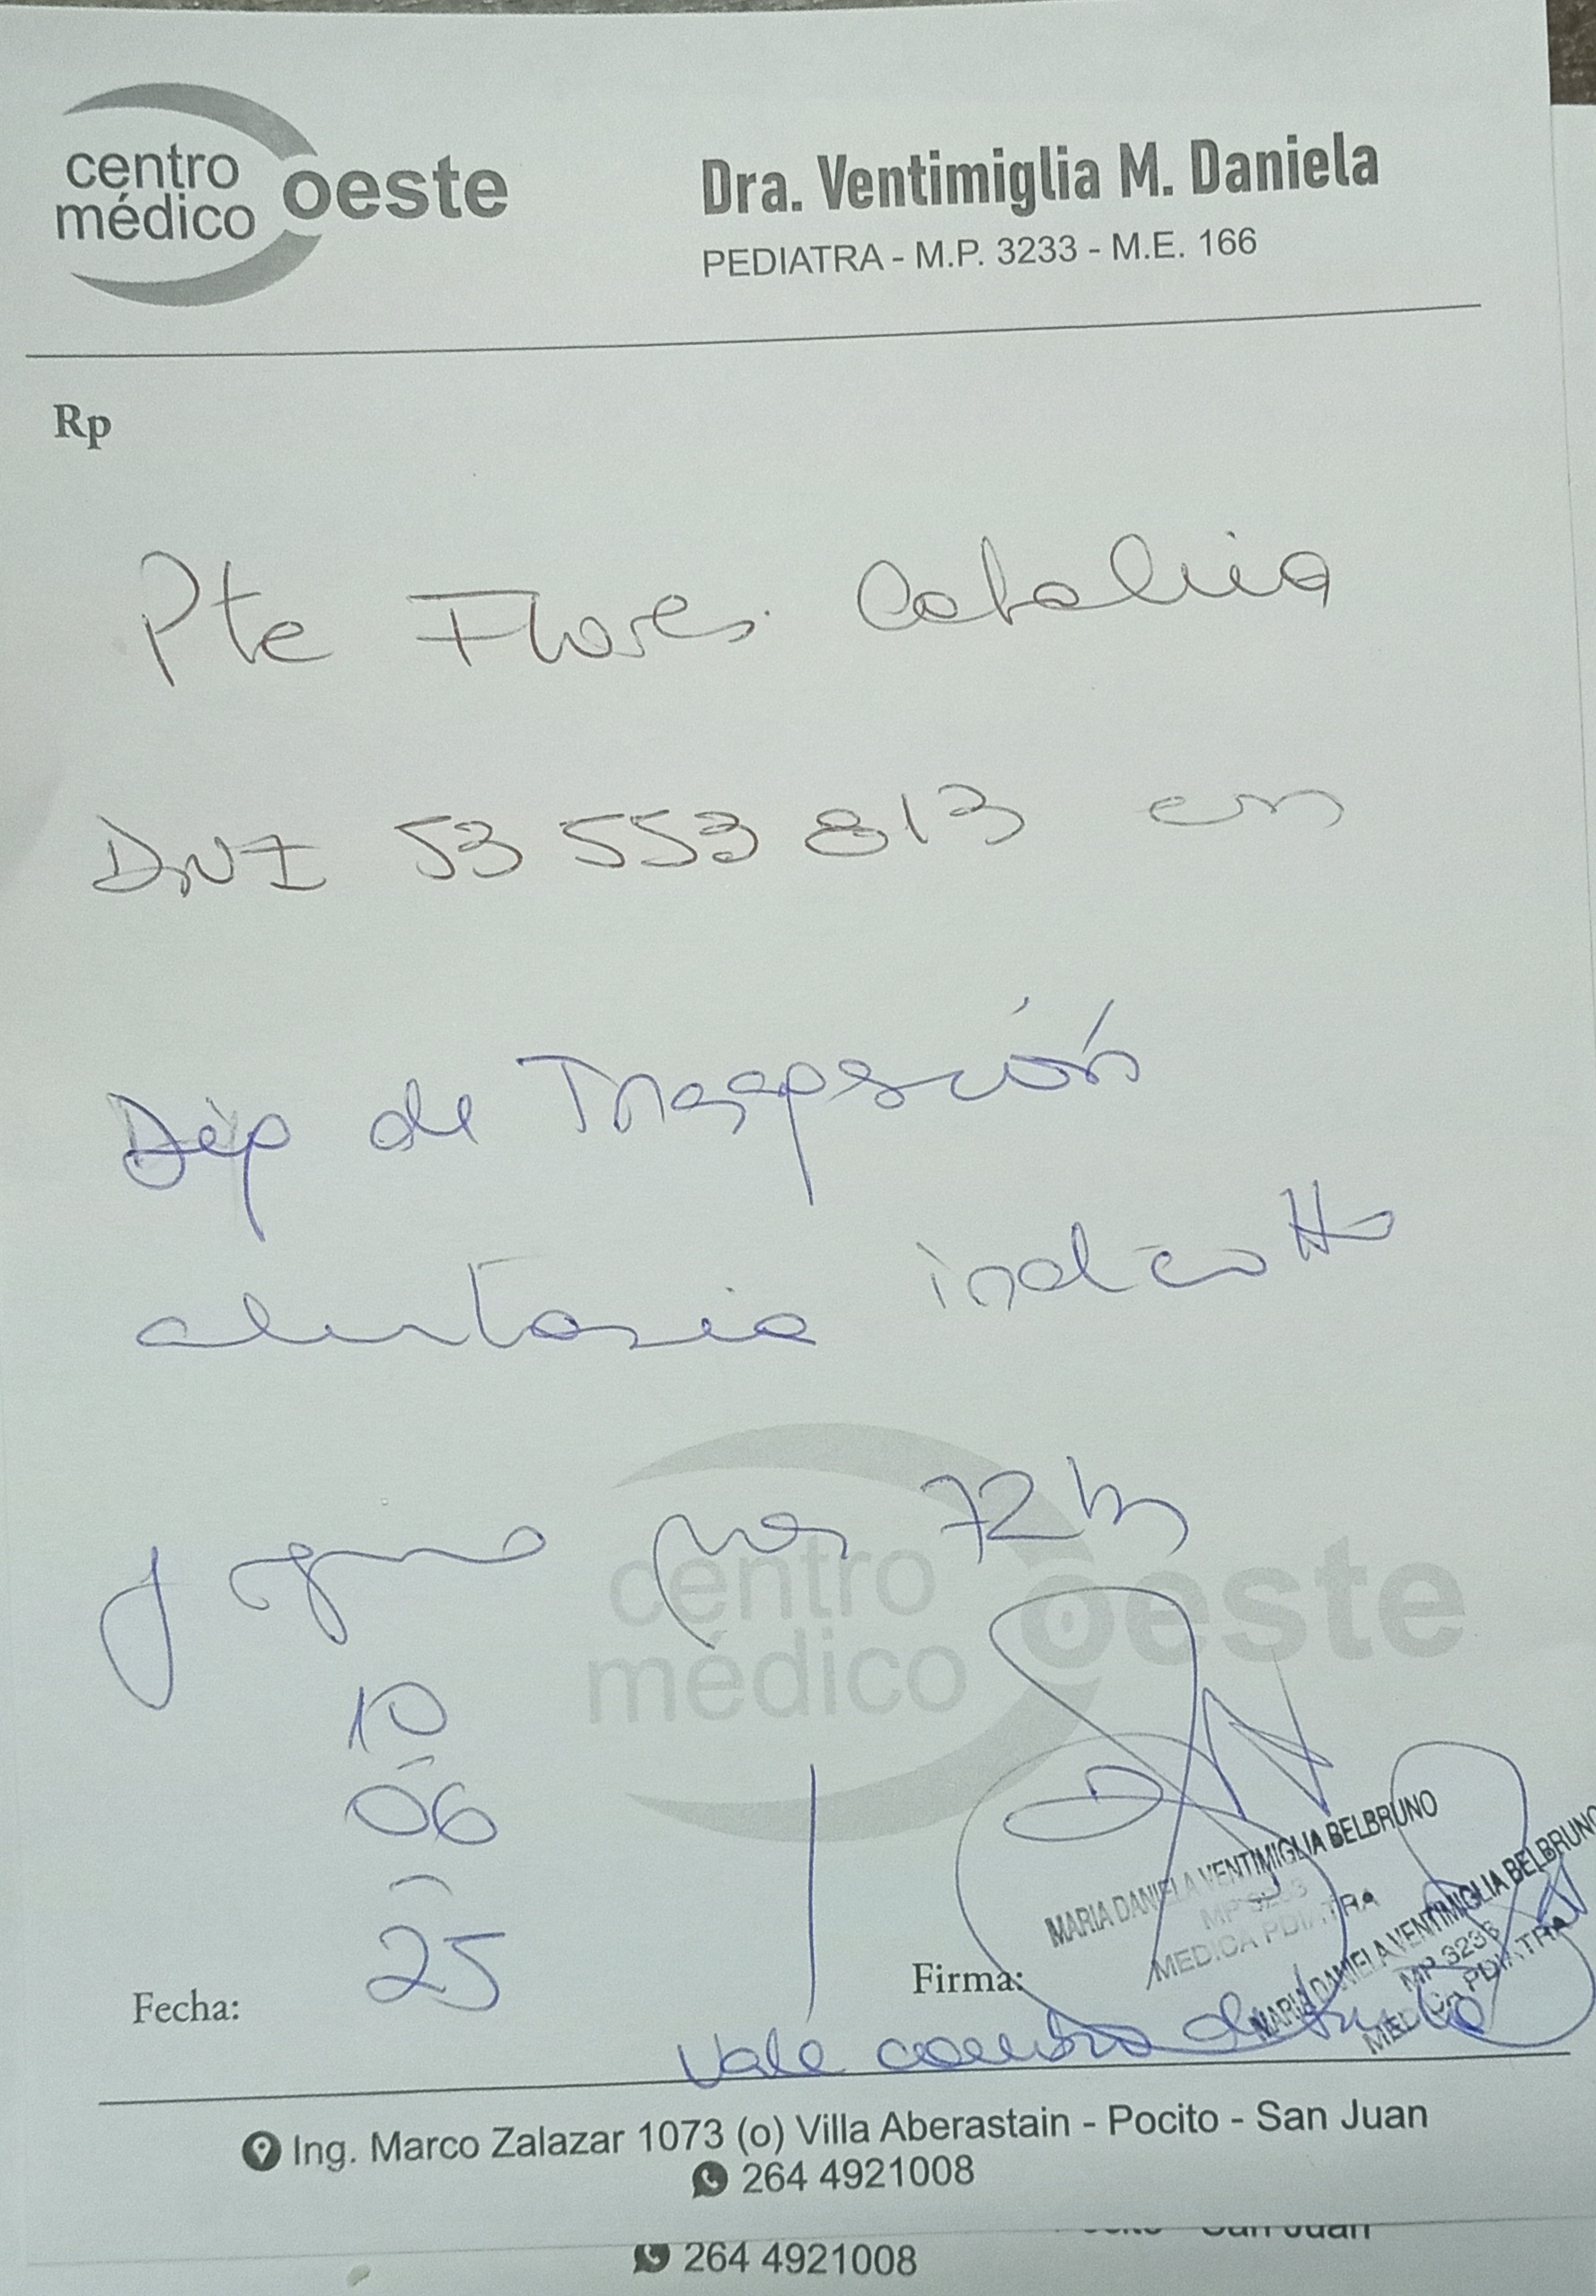 centro
médico oeste
Dra. Ventimiglia M. Daniela
PEDIATRA - M.P. 3233 - M.E. 166
Rp
Pte Flores Catalina
DNI 53 553 813 con
de
indico tto
por 72 hs
10
06
25
centro
médico oeste
MARIA DANIELA VENTIMIGLIA BELBRUNO
MP 3233
MEDICA PDIATRA
MARIA DANIELA VENTIMIGLIA BELBRUNO
MP 3233
MEDICA PDIATRA
Fecha:
Firma:
Vale
Ing. Marco Zalazar 1073 (o) Villa Aberastain - Pocito - San Juan
264 4921008
San Juan
264 4921008